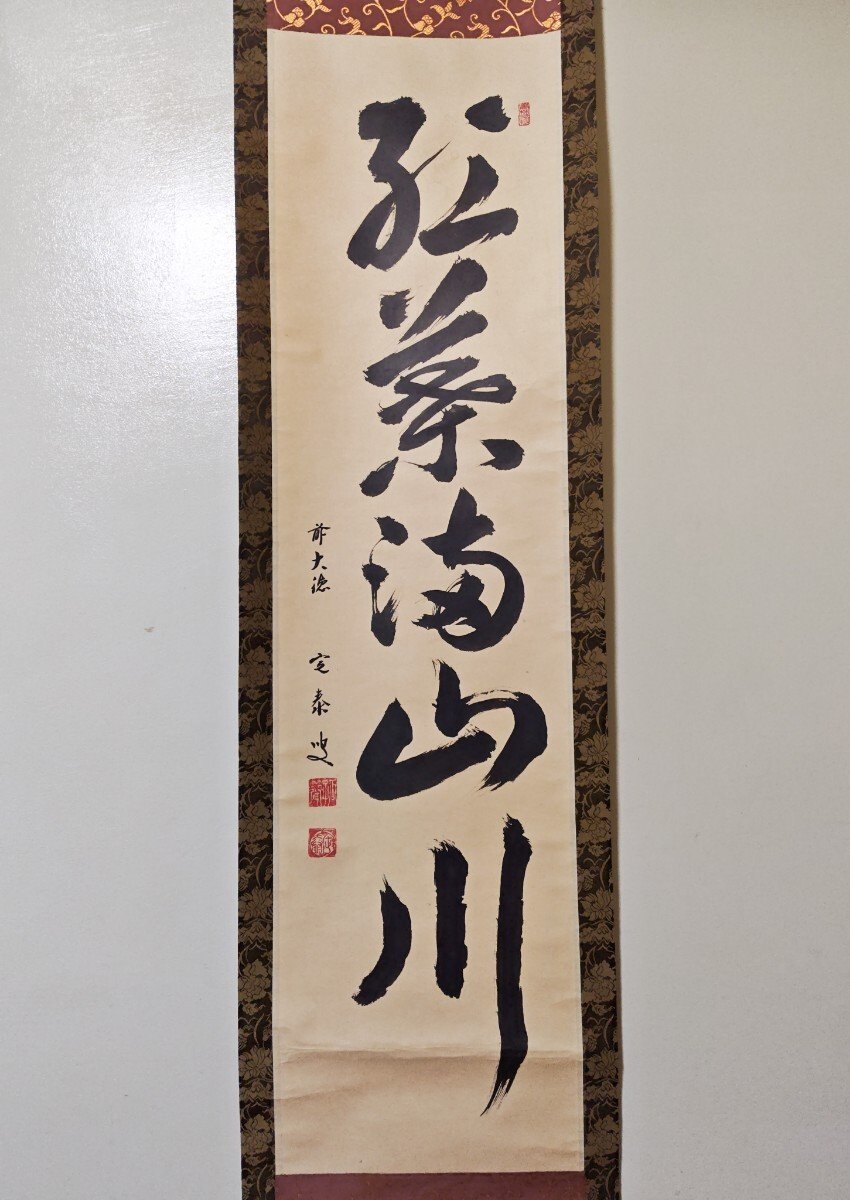 紅葉満山川
前大徳 定泰叟